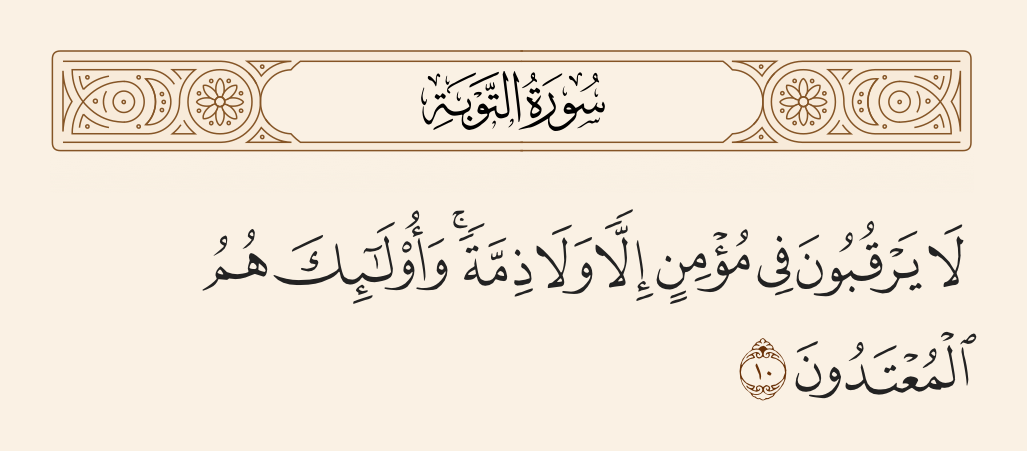 سُورَةُ التَّوۡبَةِ
لَا يَرۡقُبُونَ فِي مُؤۡمِنٍ إِلّٗا وَلَا ذِمَّةٗۚ وَأُوْلَٰٓئِكَ هُمُ
ٱلۡمُعۡتَدُونَ ١٠